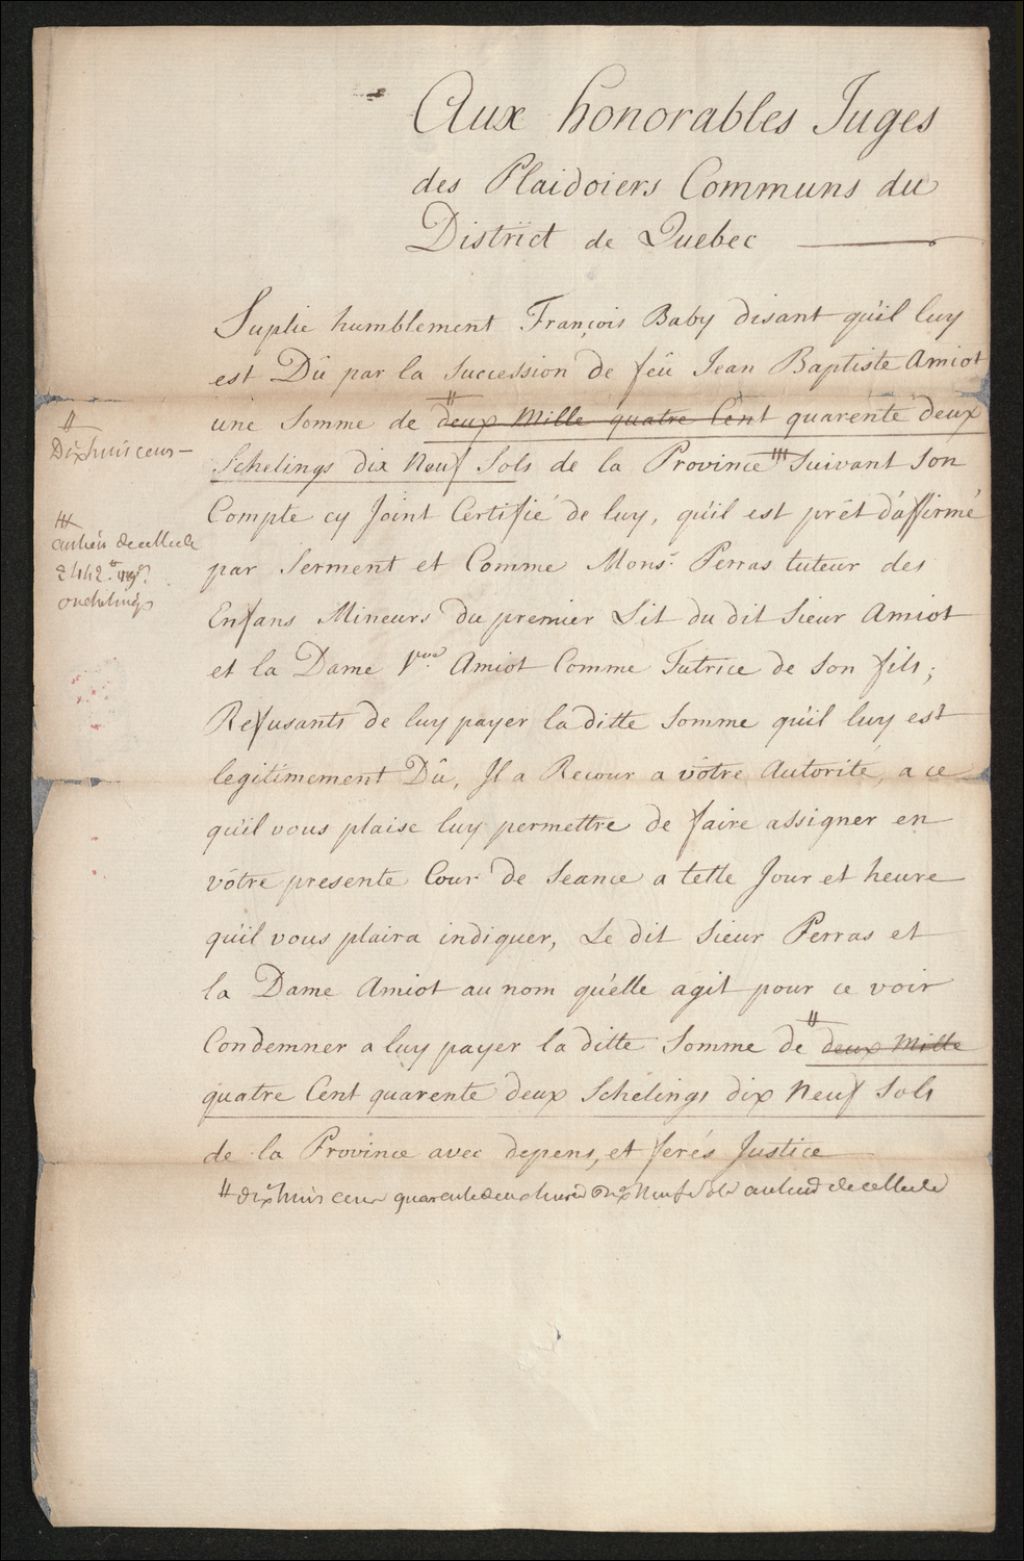 Aux honorables Juges
des Plaidoiers Communs du
District de Quebec
Suplie humblement François Baby disant qu'il luy
est Dû par la Succession de feû Jean Baptiste Amiot
une Somme de # deux Mille quatre Cent quarente deux
Schelings dix Neuf Sols de la Province Suivant Son
Compte cy Joint Certifié de luy, qu'il est prêt d'affirmé
par Serment et Comme Mons.r Perras tuteur des
Enfans Mineurs du premier Lit du dit Sieur Amiot
et la Dame V.ve Amiot Comme Tutrice de Son fils;
Refusants de luy payer la ditte Somme qu'il luy est
legitimement Dû, Il a Recour a vôtre Autorité, a ce
qu'il vous plaise luy permettre de faire assigner en
vôtre presente Cour de Seance a telle Jour et heure
qu'il vous plaira indiquer, Le dit Sieur Perras et
la Dame Amiot au nom qu'elle agit pour ce voir
Condemner a luy payer la ditte Somme de # deux Mille
quatre Cent quarente deux Schelings dix Neuf Sols
de la Province avec depens, et ferés Justice
# dix huis cens quarente deux livres dix Neuf Sols au lieu de celle de
#
Dix huis cens
au lieu de celle de
2442